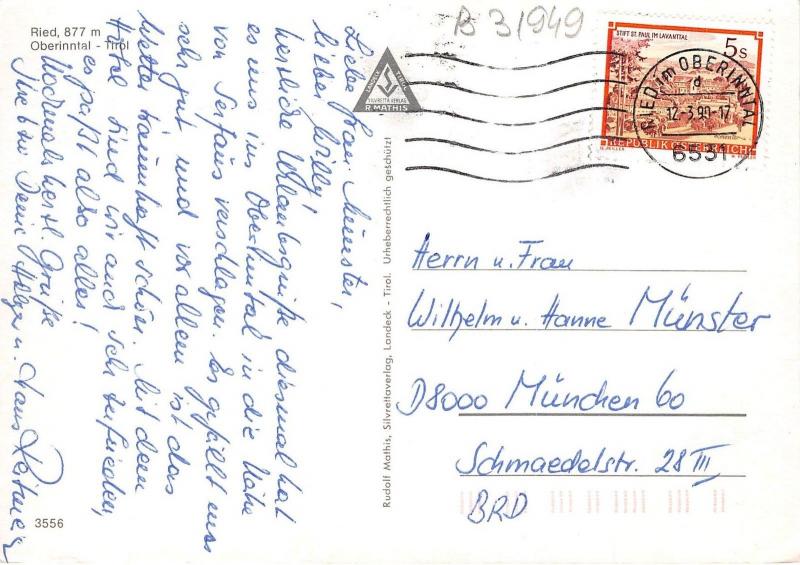 Ried, 877 m
Oberinntal - Tirol
B 31949
STIFT ST. PAUL IM LAVANTTAL
5s
REPUBLIK ÖSTERREICH
RIED im OBERINNTAL
d
12-3.90-17
6531
LANDECK TIROL
SILVRETTA VERLAG
R. MATHIS
Liebe Frau Münster,
lieber Willy!
herzliche Urlaubsgrüße diesmal hat
es uns ins Oberinntal in die Nähe
von Serfaus verschlagen. Es gefällt uns
sehr gut und vor allem ist das
Wetter traumhaft schön. Mit dem
Hotel sind wir auch sehr zufrieden,
es paßt also alles!
Nochmals herzl. Grüße
Ihre bzw. Deine Helga u. Hans
Rudolf Mathis, Silvrettaverlag, Landeck - Tirol. Urheberrechtlich geschützt
Herrn u. Frau
Wilhelm u. Hanne Münster
D8000 München 60
Schmaedelstr. 28 III
BRD
3556